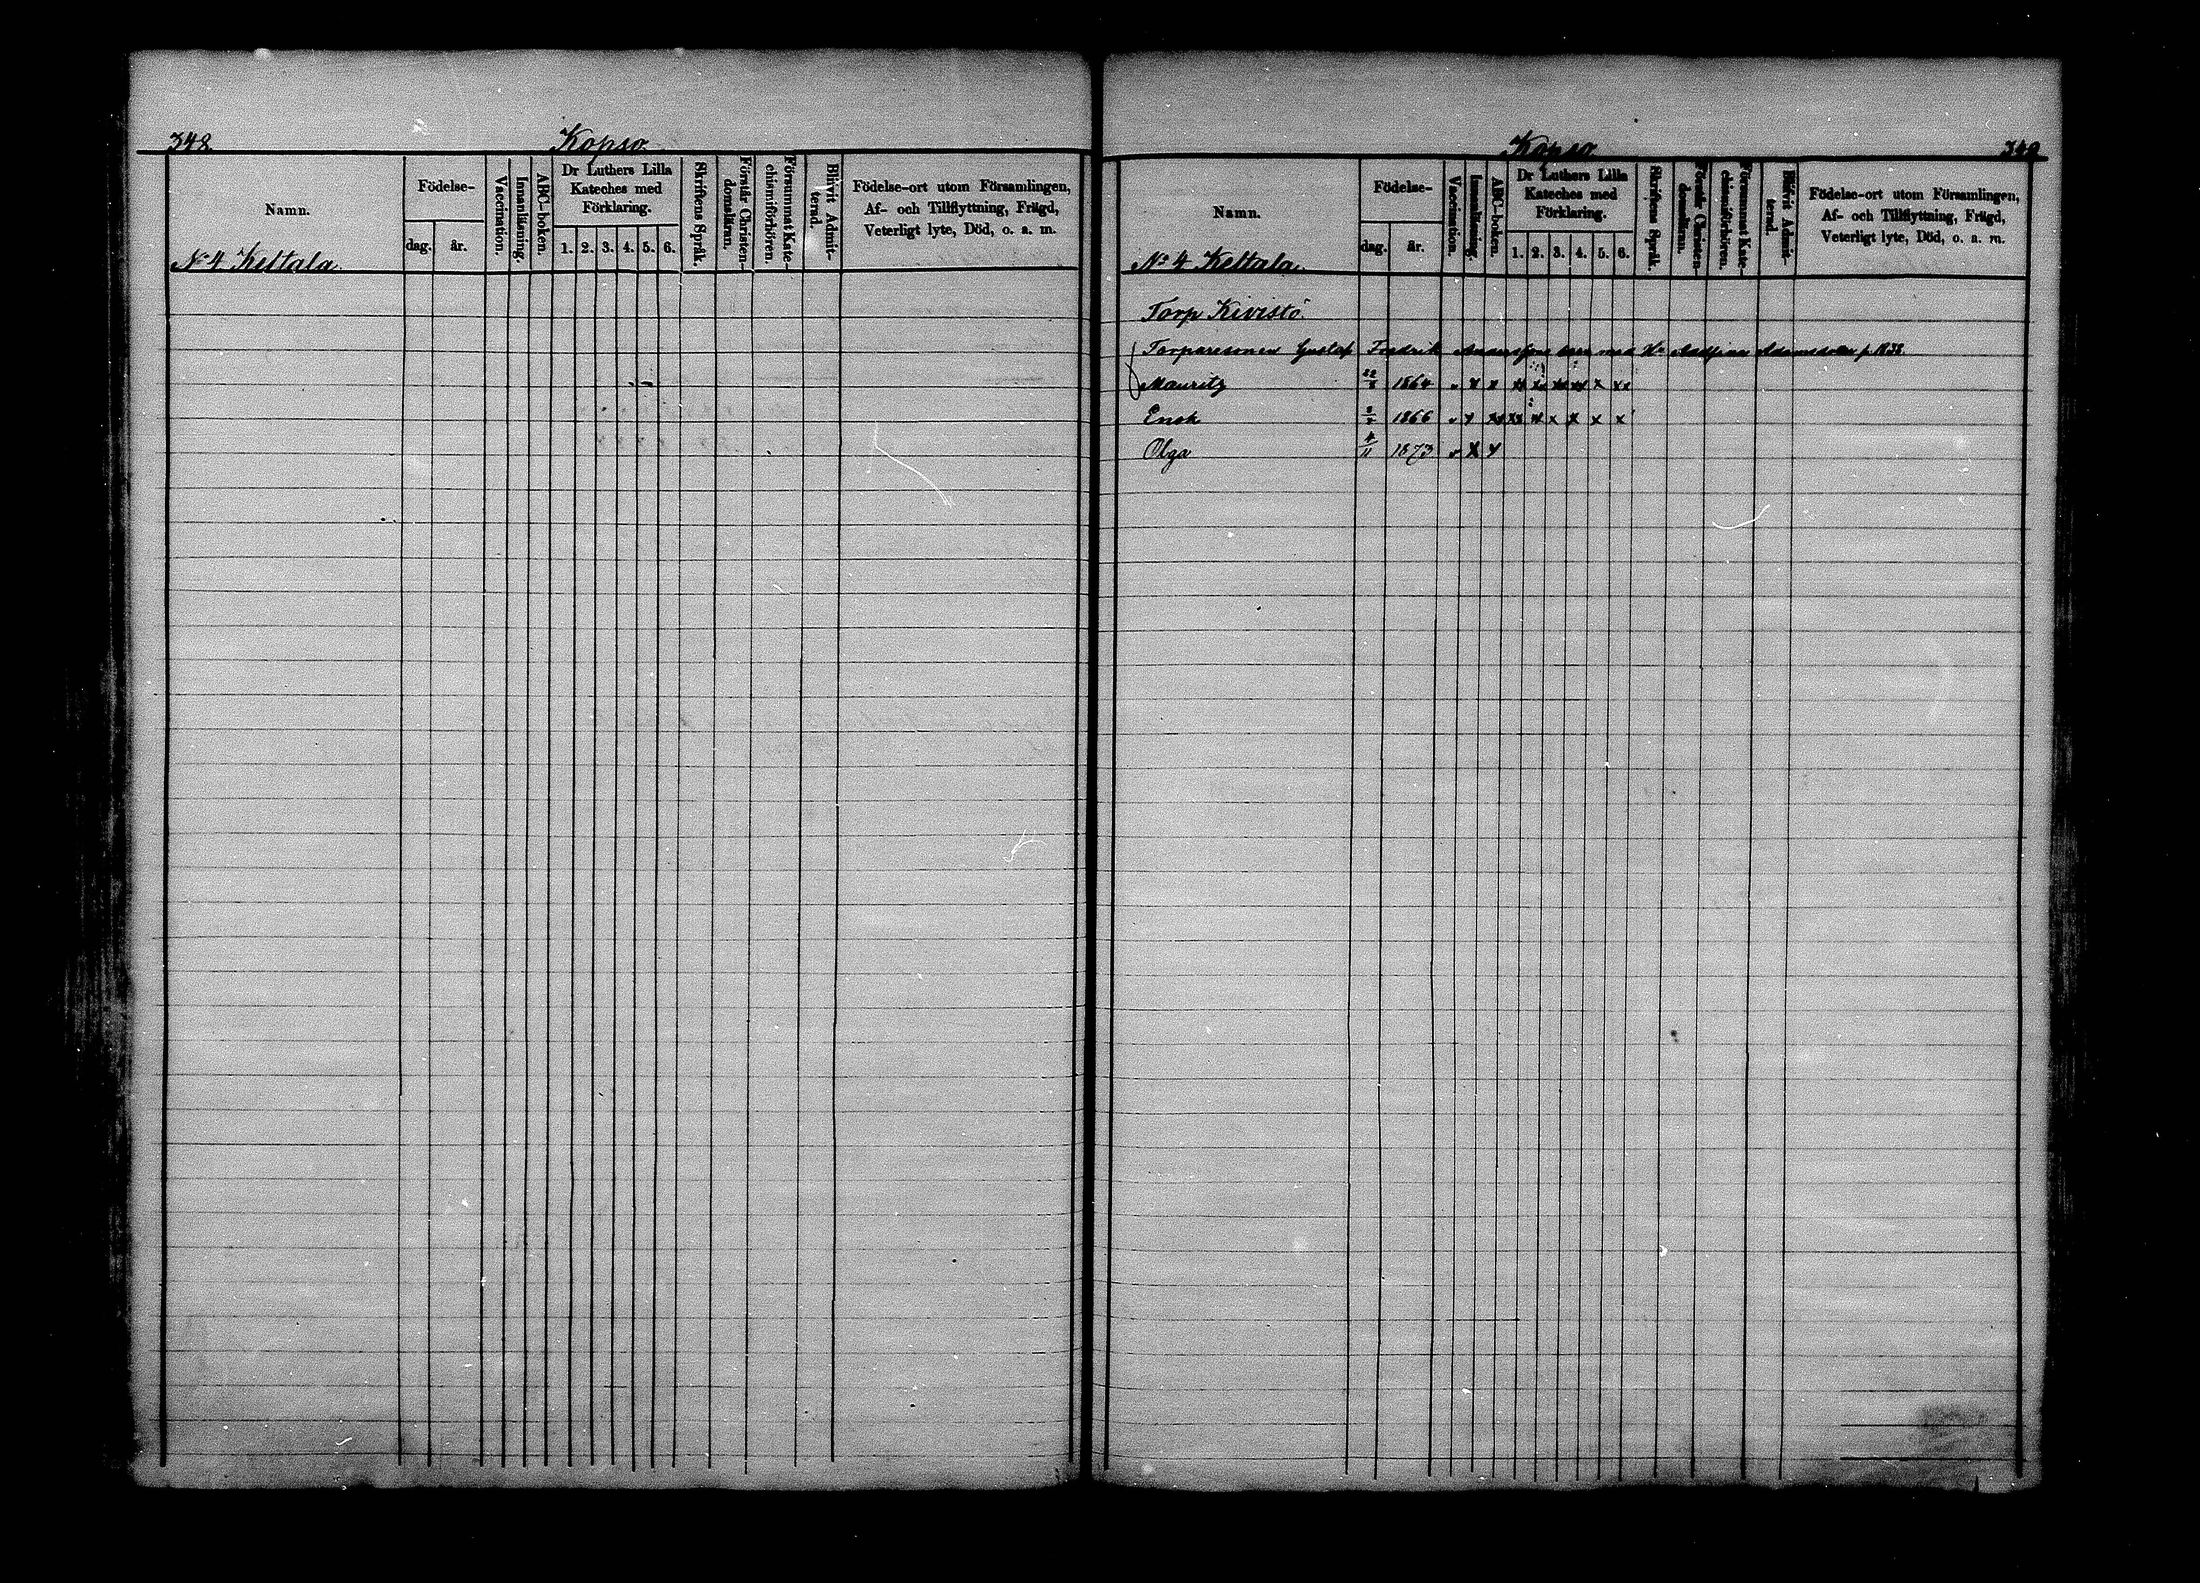 348. Kopso.
Namn.
Födelse-
dag. år.
Vaccination.
Innanläsning.
ABC-boken.
Dr Luthers Lilla Kateches med Förklaring.
1. 2. 3. 4. 5. 6.
Skriftens Språk.
Förstår Christen-domsläran.
Försummat Kate-chismiförhören.
Blifvit Admit-terad.
Födelse-ort utom Församlingen,
Af- och Tillflyttning, Frägd,
Veterligt lyte, Död, o. a. m.
No 4 Keltala.
Kopso 349
Namn.
Födelse-
dag. år.
Vaccination.
Innanläsning.
ABC-boken.
Dr Luthers Lilla Kateches med Förklaring.
1. 2. 3. 4. 5. 6.
Skriftens Språk.
Förstår Christen-domsläran.
Försummat Kate-chismiförhören.
Blifvit Admit-terad.
Födelse-ort utom Församlingen,
Af- och Tillflyttning, Frägd,
Veterligt lyte, Död, o. a. m.
No 4 Keltala.
Torp Kivistö.
Torparesonen Gustaf Fredrik Anderssons barn med Adamsdotter f. 1838.
Mauritz 1864
Enok 1866
Olga 4/11 1873